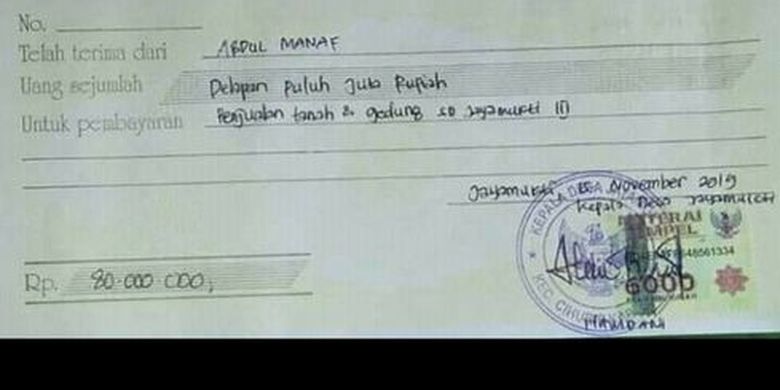 No.
Telah terima dari ABDUL MANAF
Uang sejumlah Delapan Puluh Juta Rupiah
Untuk pembayaran Penjualan tanah & gedung SD Jayamukti III
Jayamukti, November 2019
Kepala Desa Jayamukti
KEPALA DESA
METERAI
TEMPEL
6000
KEC. CIHURIP
Rp. 80.000.000,
HAMDANI